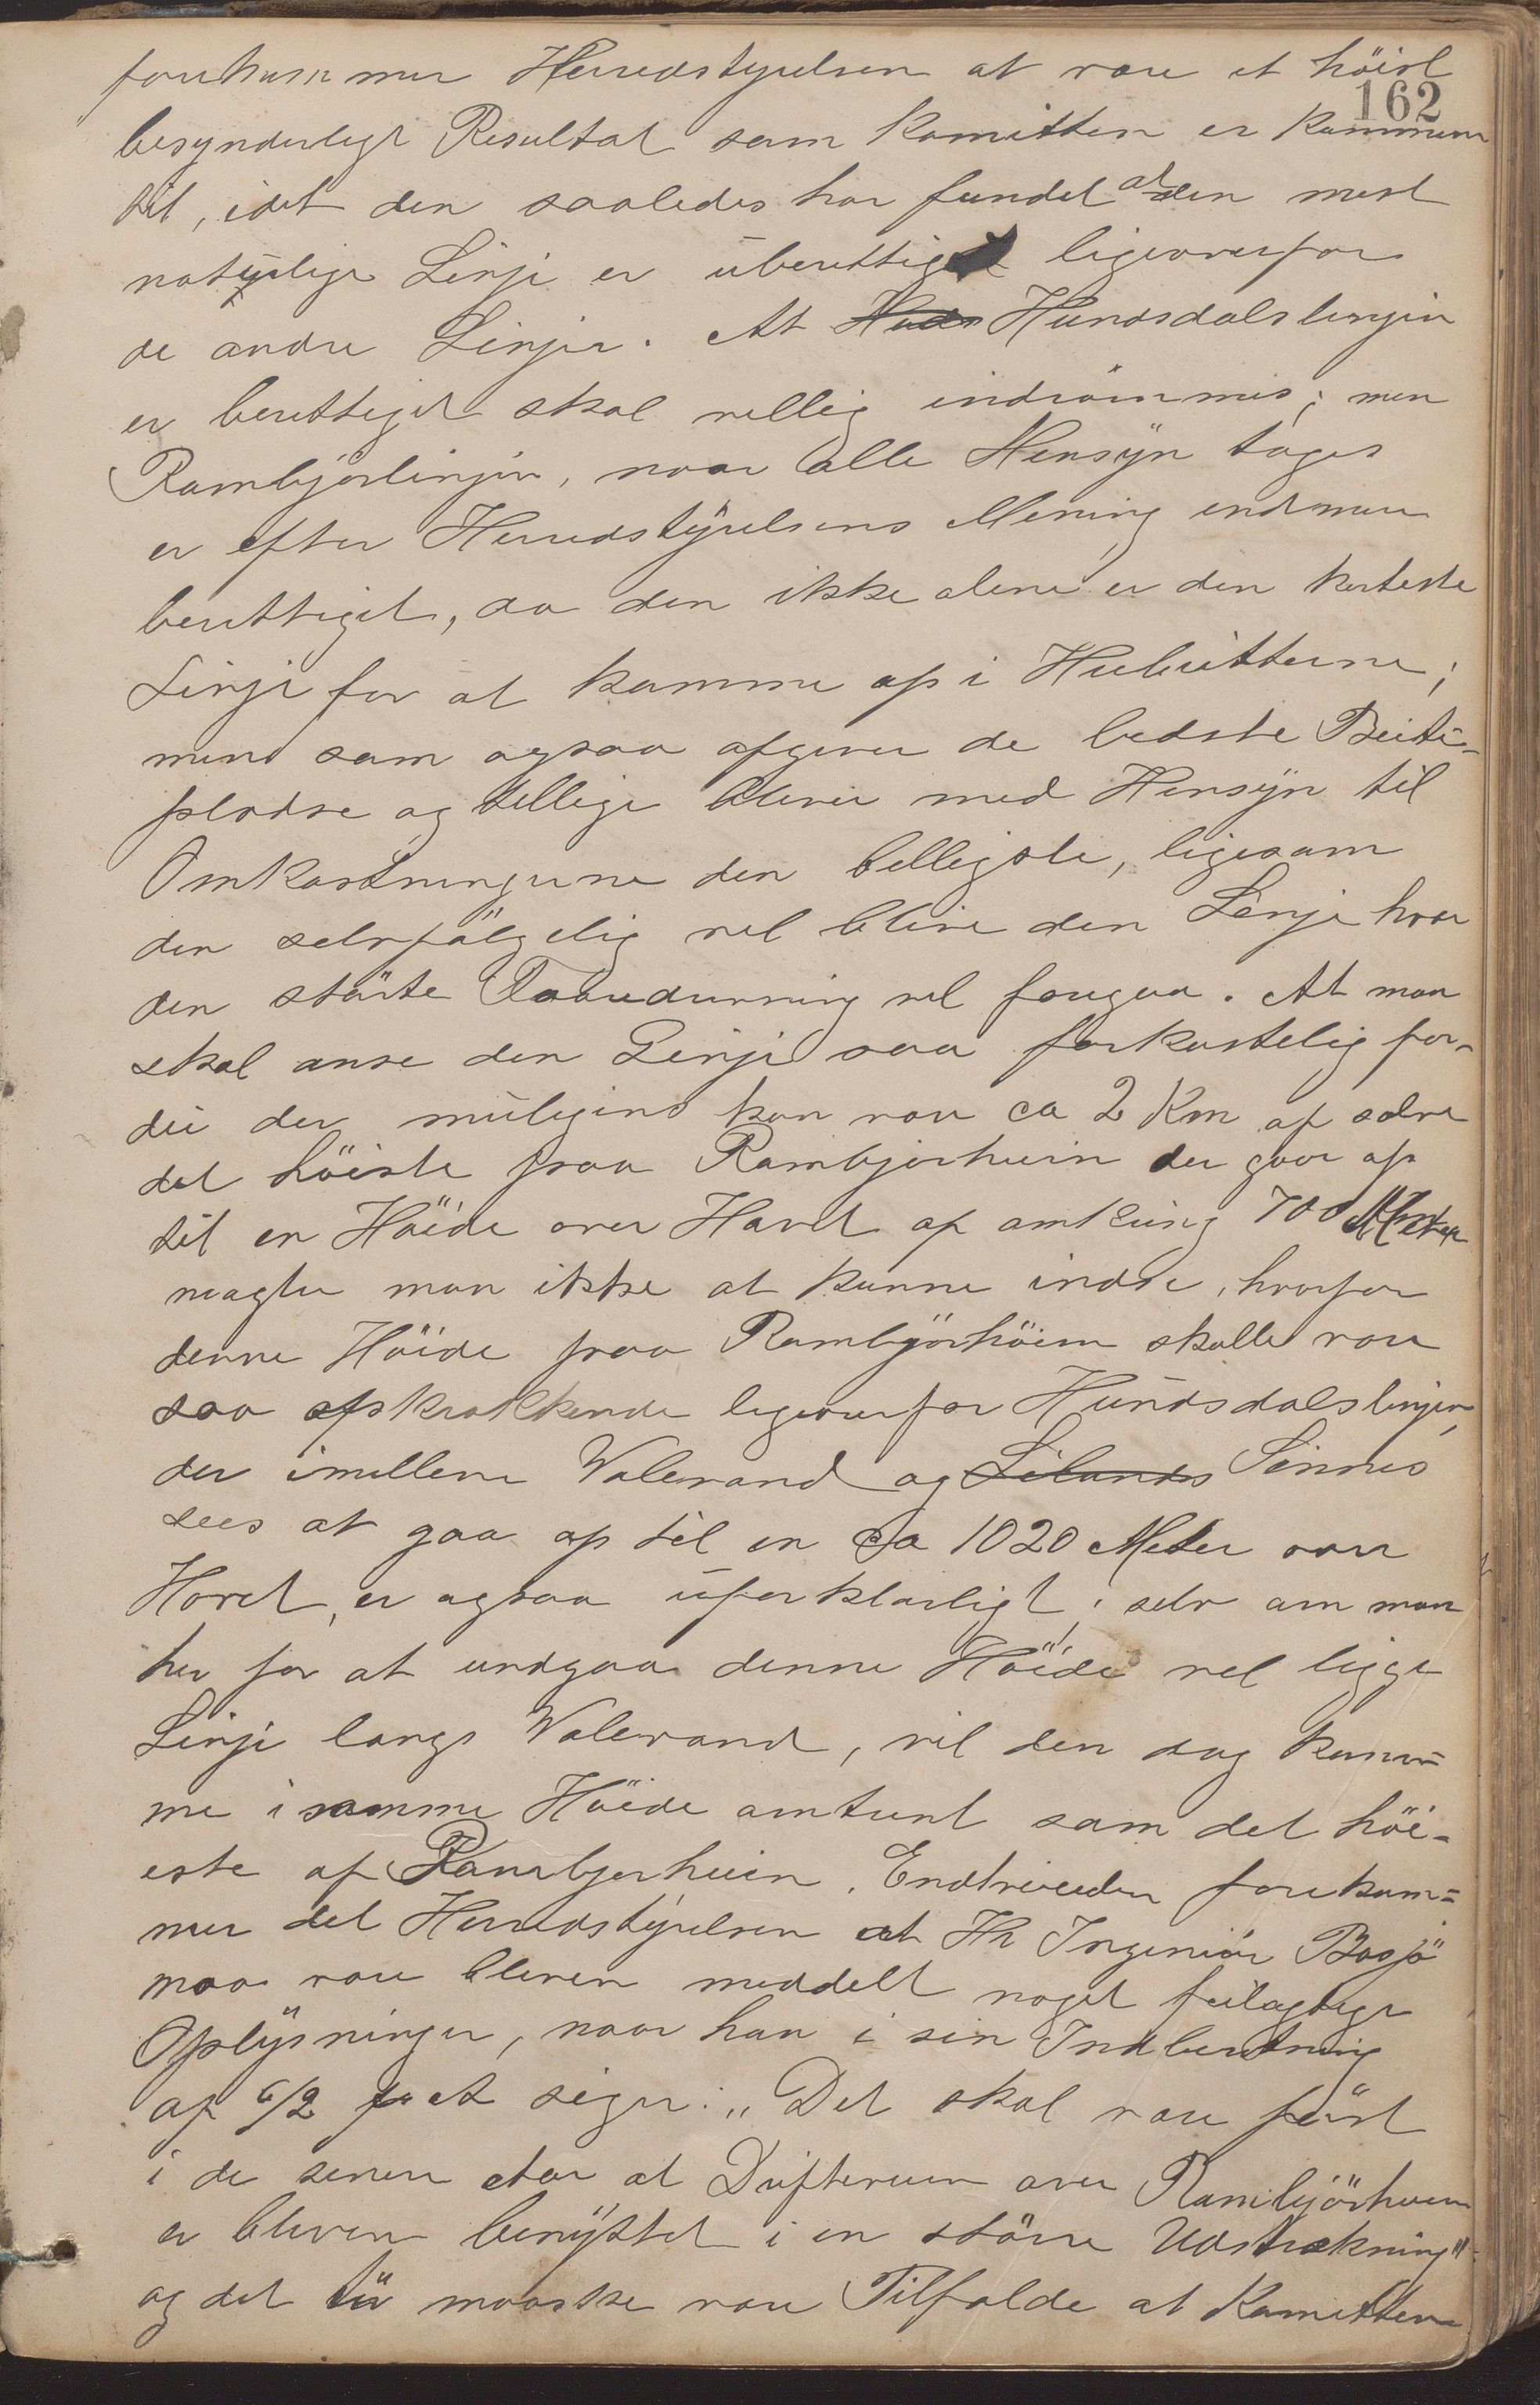 forekommer Herredstyrelsen at være et höist
162
besynderligt Resultat som Komitten er kommen
til, idet den saaledes har fundet at den mest
natyrlige Linje er uberettiget ligeoverfor
de andre Linjer. At Hunds Hunsdalslinjen
er berettiget skal villig indrömmes; men
Rambjörlinjen, naar alle Hensyn tages
er efter Herredstyrelsens Mening endmere
berettiget, da den ikke alene er den korteste
Linje for at komme op i Heibeitterne;
men som ogsaa afgiver de bedste Beite-
pladse og tillige bliver med Hensyn til
Omkostningerne den billigste, ligesom
den selvfölgelig vil blive den Linje hvor
den störste Faaredrivning vil foregaa. At man
skal anse den Linje saa forkastelig for-
di der muligens kan være ca 2 Km af selve
det höieste paa Rambjørheien der gaar op
til en Höide over Havet af omkring 700 Meter
magter man ikke at kunne indse, hvorfor
denne Höide paa Rambjörhöien skulle være
saa afskrækkende ligeoverfor Hunsdalslinjen,
der imellem Valevand og Lilands Sinnes
sees at gaa op til en ca 1020 Meter over
Havet, er ogsaa uforklarligt, selv om man
her for at undgaa denne Höide vil ligge
Linje langs Valevand, vil den dog kom=
me i samme Höide omtrent som det höi-
este af Rambjørheien. Endvidere forekom=
mer det Herredstyrelsen at Hr Ingeniör Bosjö
maa være bleven meddelt noget feilagtige
Oplysninger, naar han i sin Indberetning
af 6/2 siger: "Det skal være först
i de senere Aar at Drifteveien over Rambjörheien
er bleven benyttet i en större Udstrækning"
og det tör maaske være Tilfælde at Komitten